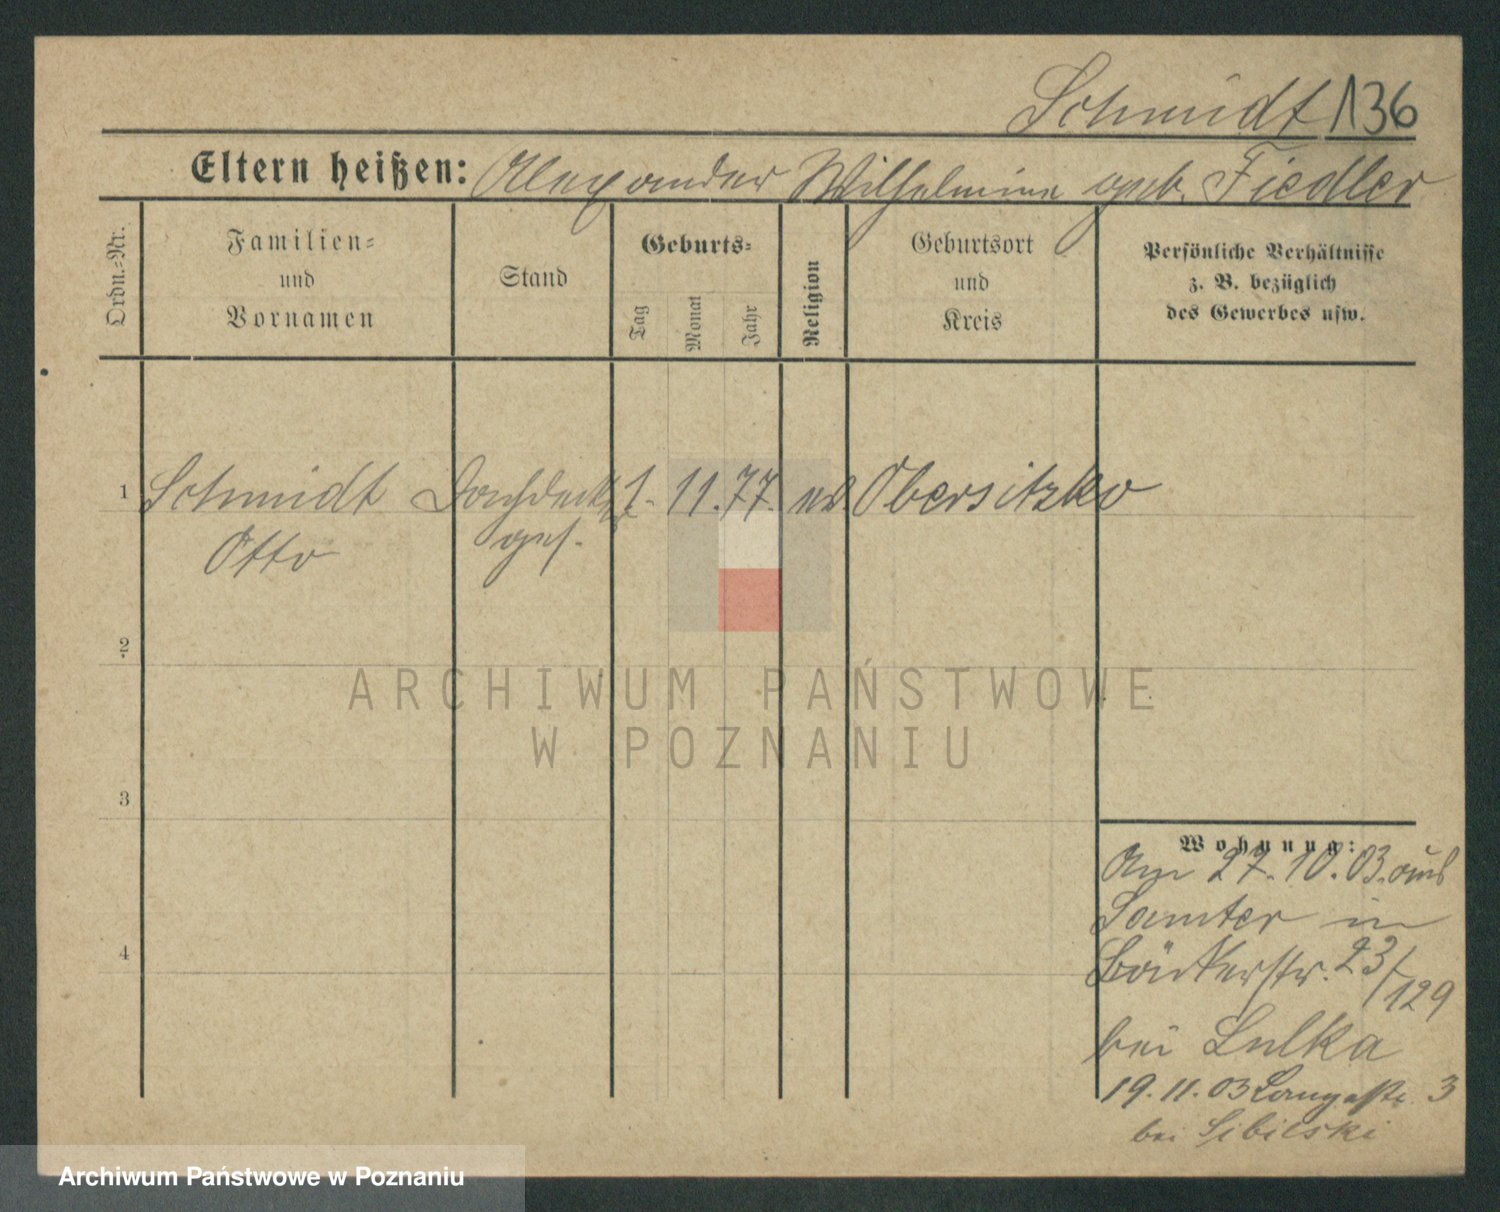 Schmidt 136
Eltern heißen: Alexander Wilhelmine geb. Fiedler
Ordn.=Nr.
Familien=
und
Vornamen
Stand
Geburts=
Tag
Monat
Jahr
Religion
Geburtsort
und
Kreis
Persönliche Verhältnisse
z. B. bezüglich
des Gewerbes usw.
1 Schmidt Dachdecker 1. 11. 77. ev. Obersitzko
Otto ges.
2
3
4
Wohnung:
Am 27.10.03. aus
Samter in
Bäckerstr. 23/129
bei Lulka
19.11.03 Langestr. 3
bei Sibilski
ARCHIWUM PAŃSTWOWE
W POZNANIU
Archiwum Państwowe w Poznaniu